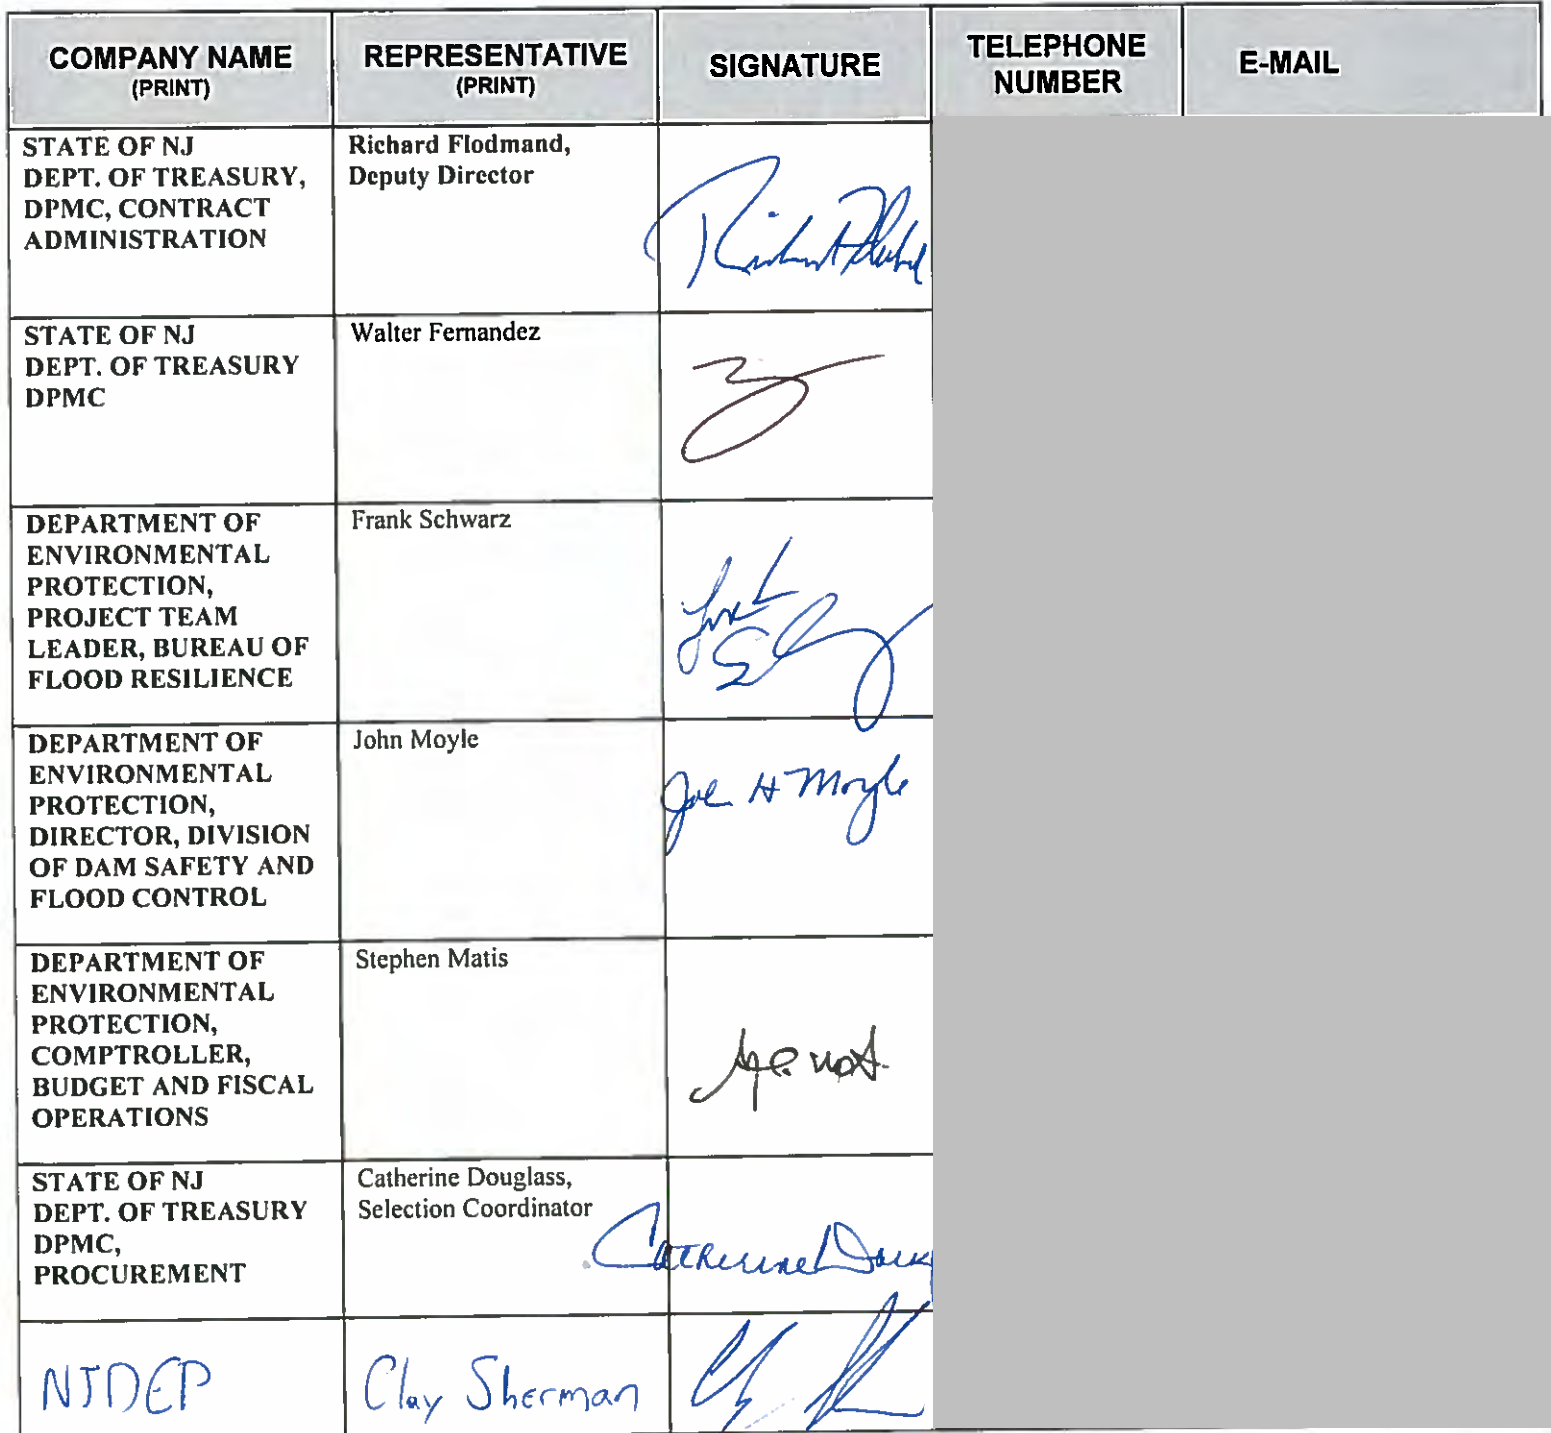 COMPANY NAME
(PRINT)
REPRESENTATIVE
(PRINT)
SIGNATURE
TELEPHONE
NUMBER
E-MAIL
STATE OF NJ
DEPT. OF TREASURY,
DPMC, CONTRACT
ADMINISTRATION
Richard Flodmand,
Deputy Director
STATE OF NJ
DEPT. OF TREASURY
DPMC
Walter Fernandez
DEPARTMENT OF
ENVIRONMENTAL
PROTECTION,
PROJECT TEAM
LEADER, BUREAU OF
FLOOD RESILIENCE
Frank Schwarz
DEPARTMENT OF
ENVIRONMENTAL
PROTECTION,
DIRECTOR, DIVISION
OF DAM SAFETY AND
FLOOD CONTROL
John Moyle
H Moyle
DEPARTMENT OF
ENVIRONMENTAL
PROTECTION,
COMPTROLLER,
BUDGET AND FISCAL
OPERATIONS
Stephen Matis
STATE OF NJ
DEPT. OF TREASURY
DPMC,
PROCUREMENT
Catherine Douglass,
Selection Coordinator
Catherine
NJDEP
Clay Sherman